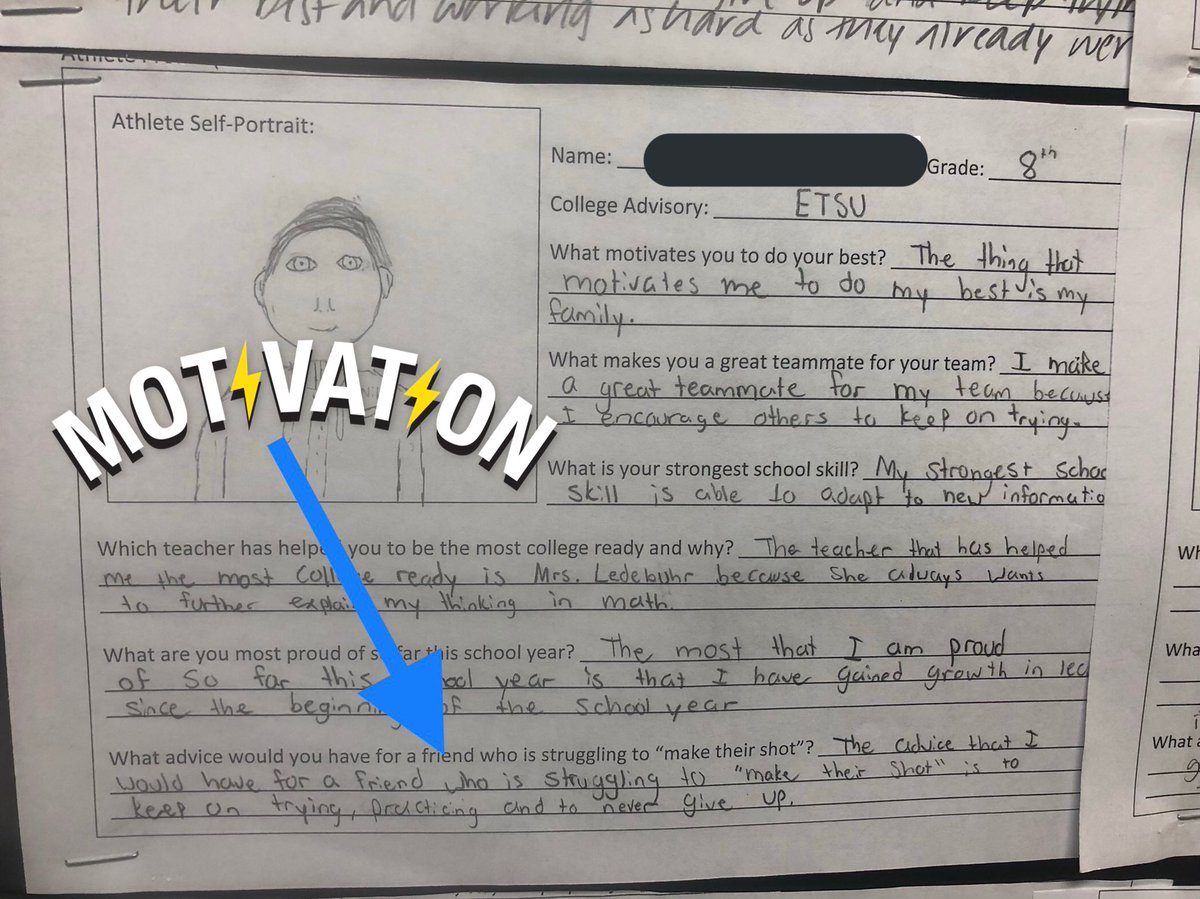 their best and working as hard as they already wer
Athlete Self-Portrait:
Name:
Grade: 8th
College Advisory: ETSU
What motivates you to do your best? The thing that
motivates me to do my best is my
family.
What makes you a great teammate for your team? I make
a great teammate for my team because
I encourage others to keep on trying.
What is your strongest school skill? My strongest schoo
skill is able to adapt to new informatio
MOTIVATION
Which teacher has helped you to be the most college ready and why? The teacher that has helped
me the most college ready is Mrs. Ledebuhr because she always wants
to further explain my thinking in math.
What are you most proud of so far this school year? The most that I am proud
of so far this school year is that I have gained growth in
since the beginning of the school year
What advice would you have for a friend who is struggling to "make their shot"? The advice that I
would have for a friend who is struggling to "make their shot" is to
keep on trying, practicing and to never give up.
Wh
Wha
What a
g